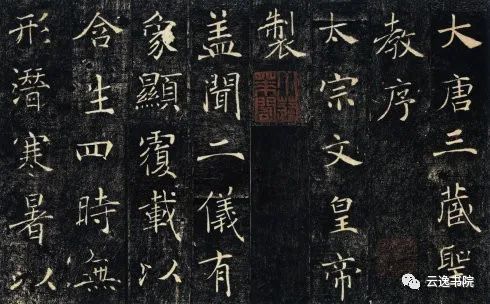 大唐三藏聖
教序
太宗文皇帝
製
盖聞二儀有
象顯覆載以
含生四時無
形潛寒暑以
云逸书院